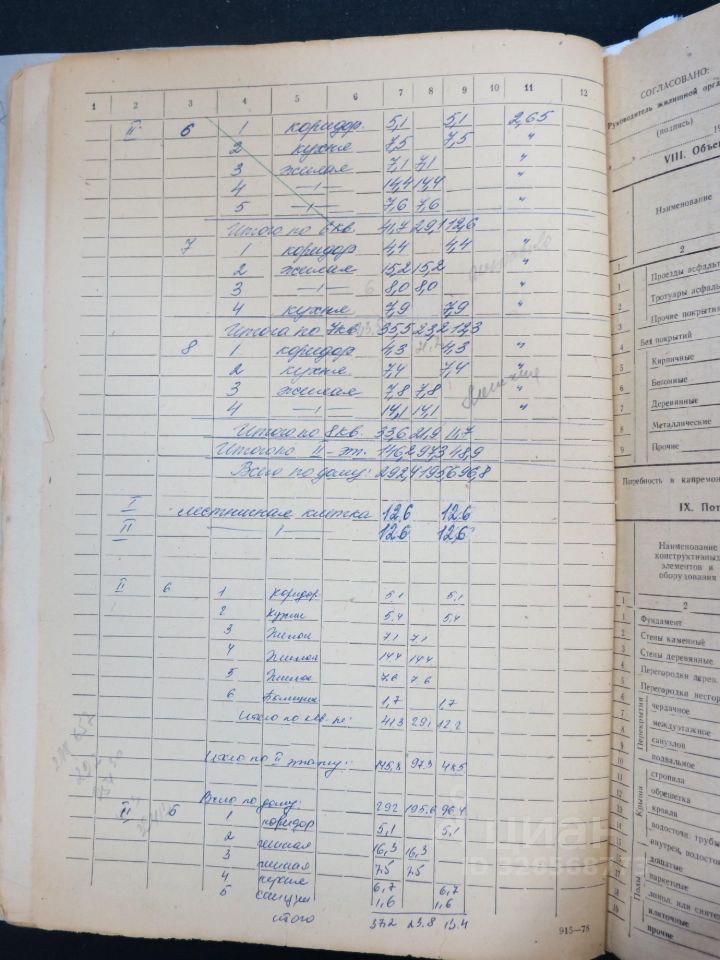 1 2 3 4 5 6 7 8 9 10 11 12
II 6 1 коридор 5,1 5,1 2,65
2 кухня 7,5 7,5 "
3 жилая 7,1 7,1 "
4 —"— 14,4 14,4 "
5 —"— 7,6 7,6 "
Итого по 6 кв. 41,7 29,1 12,6
7 1 коридор 4,4 4,4 "
2 жилая 15,2 15,2 "
3 —"— 8,0 8,0 "
4 кухня 7,9 7,9 "
Итого по 7 кв. 35,5 23,2 12,3
8 1 коридор 4,3 4,3 "
2 кухня 7,4 7,4 "
3 жилая 7,8 7,8 "
4 —"— 14,1 14,1 "
Итого по 8 кв. 33,6 21,9 11,7
Итого по II – эт. 146,2 97,3 48,9
Всего по дому: 292,4 195,6 96,8
I лестничная клетка 12.6 12.6
II —"— 12.6 12,6
II 6 1 коридор 5.1 5.1
2 Кухня 5.4 5.4
3 Жилая 7.1 7.1
4 Жилая 14.4 14.4
5 Жилая 7.6 7.6
6 1,7 1.7
Итого по кв. 41.3 29.1 12.2
Итого по II этажу: 145.8 97.3 48.5
Всего по дому: 292 195.6 96.4
II 6 1 коридор 5,1 5.1
2 жилая 16,3 16,3
3 жилая 7.5 7.5
4 кухня 6,7 6,7
5 санузел 1,6 1,6
итого 37.2 23.8 13.4
915—78
СОГЛАСОВАНО:
Руководитель жилищной орга
(подпись)
" " 19
VIII. Объе
Наименование
2
1 Проезды асфальт
2 Тротуары асфаль
3 Прочие покрытия
4 Без покрытий
5 Кирпичные
6 Бетонные
7 Деревянные
8 Металлические
9 Прочие
Потребность в капремон
IX. Пот
Наименование
конструктивных
элементов и
оборудования
1 2
1 Фундамент
2 Стены каменные
3 Стены деревянные
4 Перегородки дерев.
5 Перегородки несгор
6 Перекрытия чердачное
7 междуэтажное
8 санузлов
9 подвальное
10 Крыши стропила
11 обрешетка
12 кровля
13 водосточн. трубы
14 внутрен. водосто
15 Полы дощатые
16 паркетные
17 линол. или синтет
18 плиточные
19 прочие
Циан